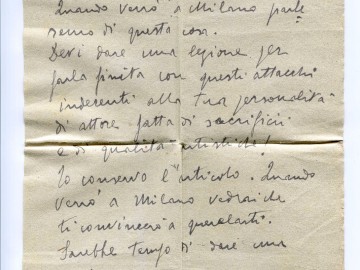 Quando verrò a Milano parle
remo di questa cosa.
Devi dare una lezione per
farla finita con questi attacchi
indecenti alla tua personalità
di attore fatta di sacrifici
e di qualità artistiche!
Io conservo l'articolo. Quando
verrò a Milano vedrai che
ti convincerò a querelarti.
Sarebbe tempo di dare una